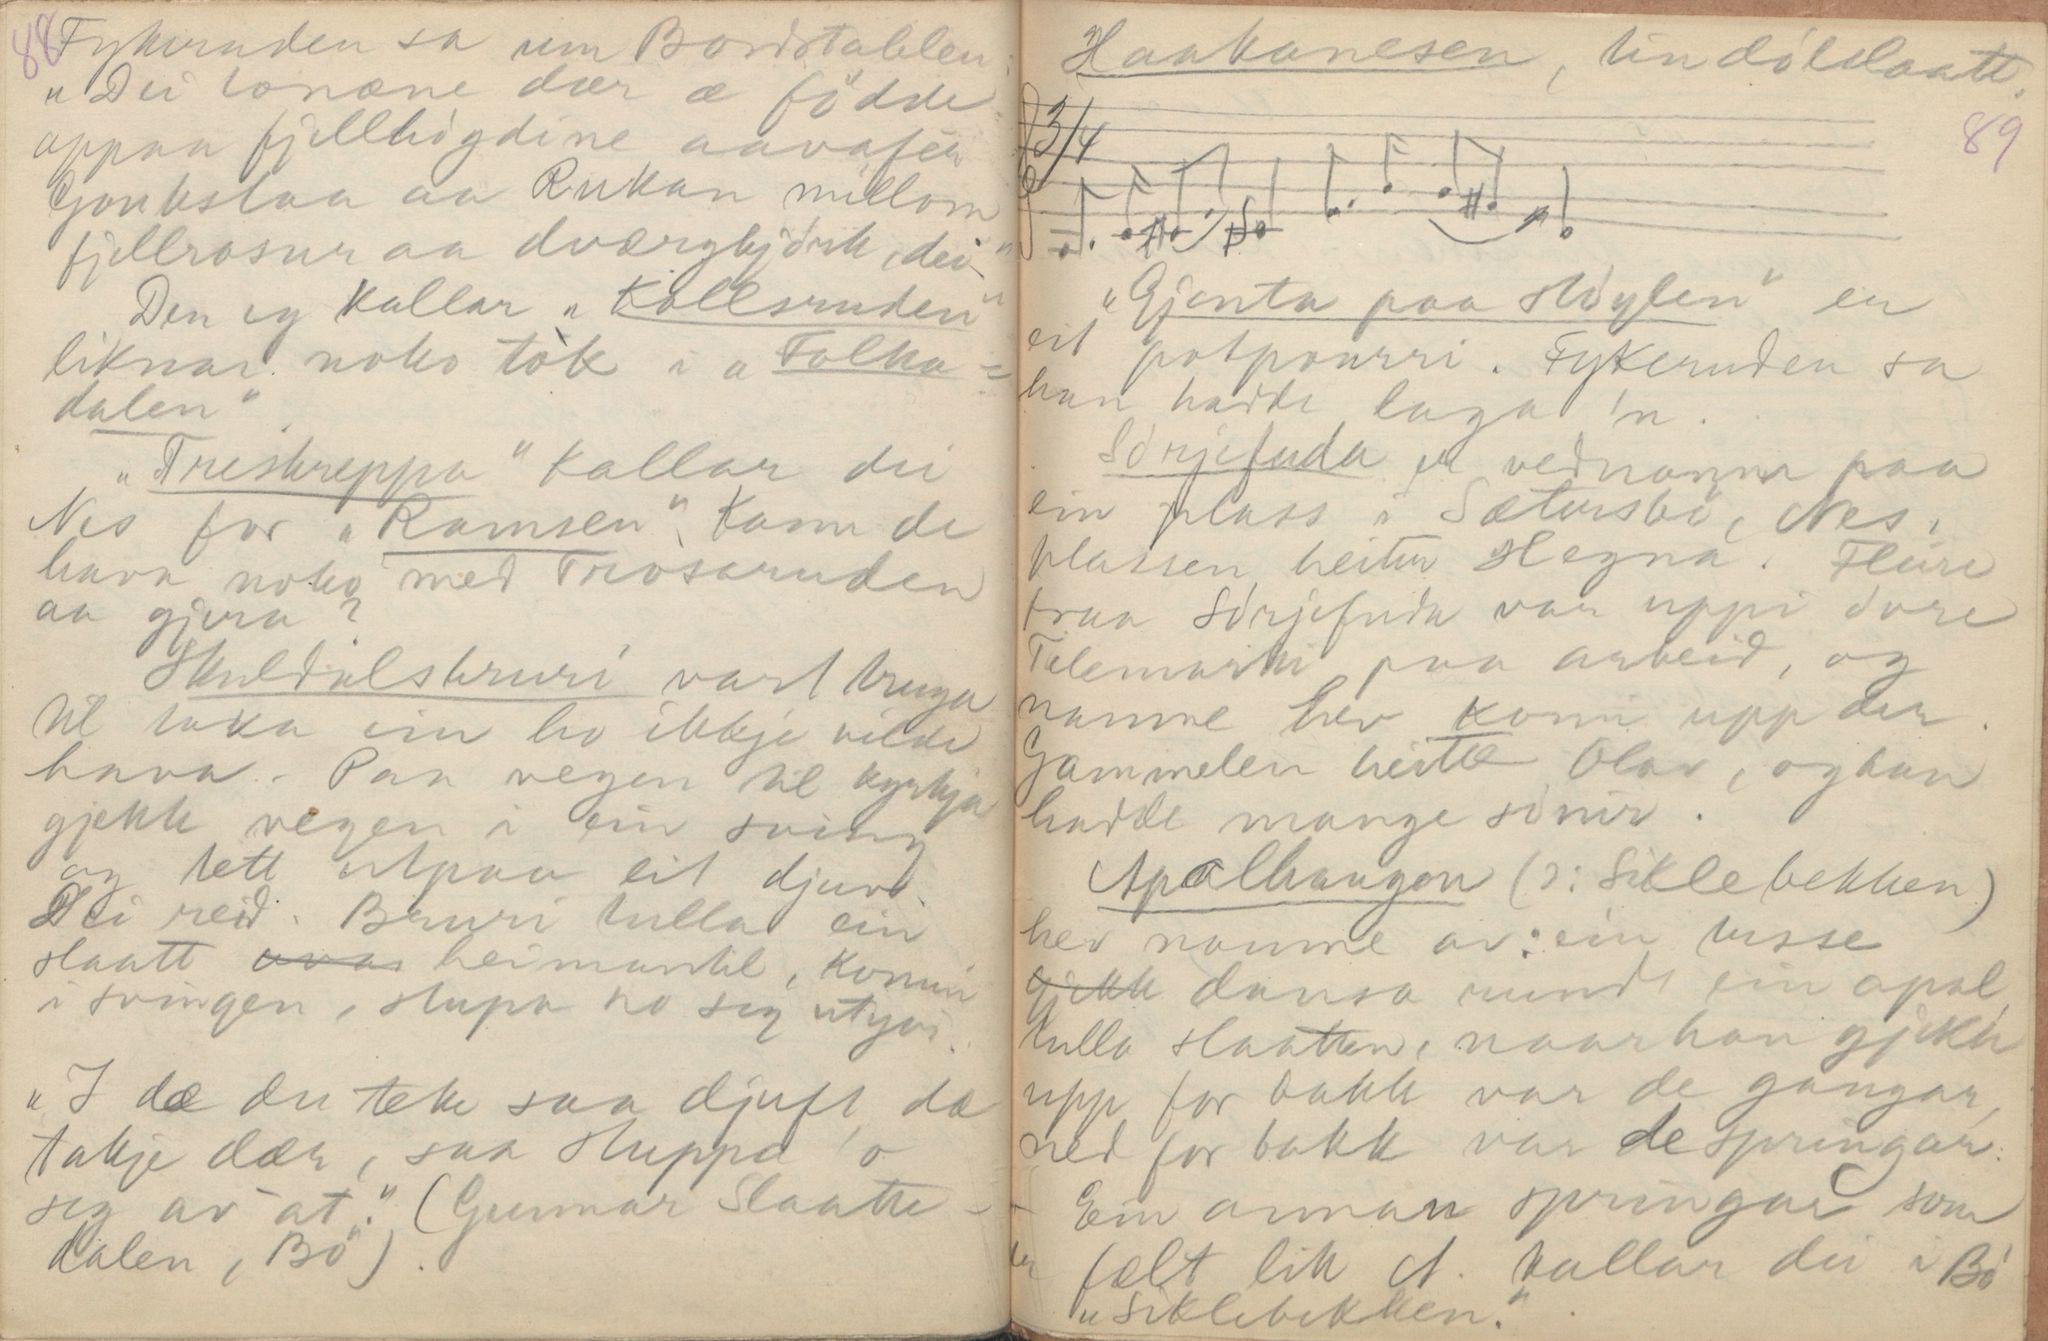 88
Fykeruden sa um Bordstabbelen:
"Dei tonæne dær æ födde
uppaa fjellhögdine aavafer
Goukstaa aa Rukan millom
fjellrosur aa dværgbjörk, dei"
Den eg kallar "Kallsruden"
liknar noko tök i a "Folka=
dalen".
"Treskreppa" kallar dei
Nes for "Ramsen". Kann de
hava noko med Trosaruden
aa gjera?
Skuldalsbruri vart truga
til taka ein ho ikkje vilde
hava. Paa vegen til kyrkja
gjekk vegen i ein sving
og tett utpaa eit djuv.
Dei reid. Bruri tulla ein
slaatt heimantil, komin
i svingen, stupa ho seg utyvi.
"I dæ du teke saa djuft, dæ
takje dær, saa stuppa 'o
seg av at." (Gunnar Slaatte-
dalen, Bö).
Haakanesen, tindölslaatt.
89
3/4
"Gjenta paa Höglen" er
eit potpourri. Fykeruden sa
han hadde laga 'n.
Sörjefuda er vednamn paa
ein plass i Sætersbö, Nes,
plassen heiter Hegna. Fleire
fraa Sörjefuda var uppi övre
Telemarki paa arbeid, og
namne hev komi upp der.
Gammelen heitte Olav, og han
hadde mange söner.
Apalhaugen (ɔ: Siklebekken)
hev namne av: ein tusse
gjekk dansa rundt ein apal,
tulla slaatten, naar han gjekk
upp for bakk var de gangar,
ned for bakk var de springar.
Ein annan springar som
er fælt lik A. kallar dei i Bö
"Siklebekken."